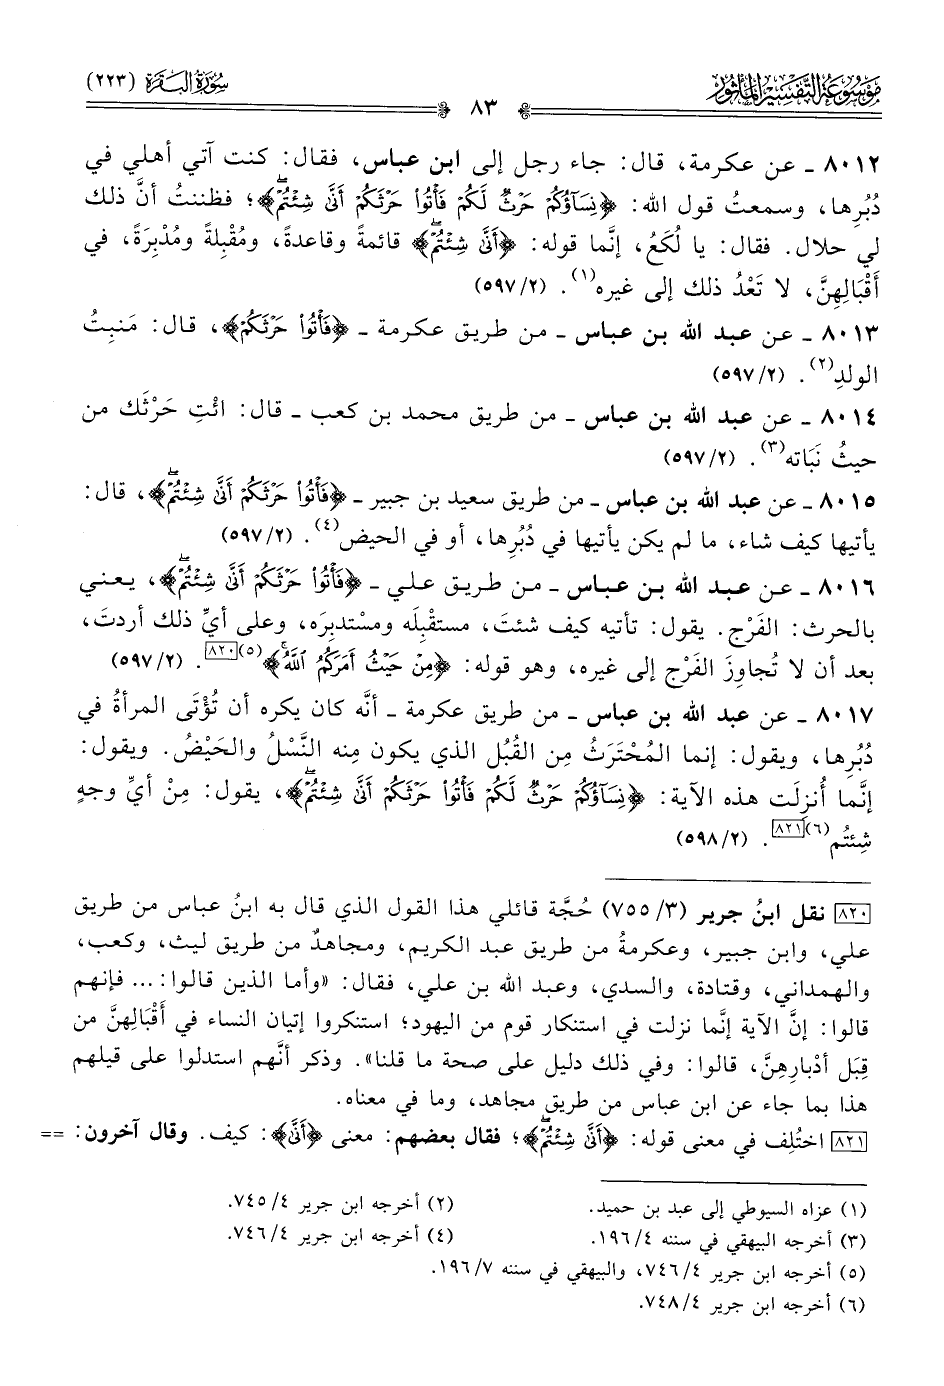 مَوْسُوعَةُ التَّفْسِيْرِ المَأْثُورِ
سُورَةُ البَقَرَةِ (٢٢٣)
٨٣
٨٠١٢ ـ عن عكرمة، قال: جاء رجل إلى ابن عباس، فقال: كنت آتي أهلي في
دُبُرِها، وسمعتُ قول الله: ﴿نِسَآؤُكُمْ حَرْثٌ لَّكُمْ فَأْتُوا۟ حَرْثَكُمْ أَنَّىٰ شِئْتُمْ﴾؛ فظننتُ أنَّ ذلك
لي حلال. فقال: يا لُكَعُ، إنَّما قوله: ﴿أَنَّىٰ شِئْتُمْ﴾ قائمةً وقاعدةً، ومُقْبِلةً ومُدْبِرَةً، في
أَقْبَالِهِنَّ، لا تَعْدُ ذلك إلى غيره(١). (٥٩٧/٢)
٨٠١٣ ـ عن عبد الله بن عباس ـ من طريق عكرمة ـ ﴿فَأْتُوا۟ حَرْثَكُمْ﴾، قال: مَنبِتُ
الولدِ(٢). (٥٩٧/٢)
٨٠١٤ ـ عن عبد الله بن عباس ـ من طريق محمد بن كعب ـ قال: ائْتِ حَرْثَك من
حيثُ نَبَاته(٣). (٥٩٧/٢)
٨٠١٥ ـ عن عبد الله بن عباس ـ من طريق سعيد بن جبير ـ ﴿فَأْتُوا۟ حَرْثَكُمْ أَنَّىٰ شِئْتُمْ﴾، قال:
يأتيها كيف شاء، ما لم يكن يأتيها في دُبُرِها، أو في الحيض(٤). (٥٩٧/٢)
٨٠١٦ ـ عن عبد الله بن عباس ـ من طريق علي ـ ﴿فَأْتُوا۟ حَرْثَكُمْ أَنَّىٰ شِئْتُمْ﴾، يعني
بالحرث: الفَرْج. يقول: تأتيه كيف شئتَ، مستقبِلَه ومستدبِرَه، وعلى أيِّ ذلك أردتَ،
بعد أن لا تُجاوِزَ الفَرْج إلى غيره، وهو قوله: ﴿مِنْ حَيْثُ أَمَرَكُمُ ٱللَّهُ﴾(٥)[٨٢٠]. (٥٩٧/٢)
٨٠١٧ ـ عن عبد الله بن عباس ـ من طريق عكرمة ـ أنَّه كان يكره أن تُؤْتَى المرأةُ في
دُبُرِها، ويقول: إنما المُحْتَرَثُ مِن القُبُل الذي يكون منه النَّسْلُ والحَيْضُ. ويقول:
إنَّما أُنزِلَت هذه الآية: ﴿نِسَآؤُكُمْ حَرْثٌ لَّكُمْ فَأْتُوا۟ حَرْثَكُمْ أَنَّىٰ شِئْتُمْ﴾، يقول: مِنْ أيِّ وجهٍ
شِئتُم(٦)[٨٢١]. (٥٩٨/٢)
[٨٢٠] نقل ابنُ جرير (٧٥٥/٣) حُجَّة قائلي هذا القول الذي قال به ابنُ عباس من طريق
علي، وابن جبير، وعكرمةُ من طريق عبد الكريم، ومجاهدٌ من طريق ليث، وكعب،
والهمداني، وقتادة، والسدي، وعبد الله بن علي، فقال: «وأما الذين قالوا: ... فإنهم
قالوا: إنَّ الآية إنَّما نزلت في استنكار قوم من اليهود؛ استنكروا إتيان النساء في أَقْبَالِهِنَّ من
قِبَل أدْبارِهِنَّ، قالوا: وفي ذلك دليل على صحة ما قلنا». وذكر أنَّهم استدلوا على قيلهم
هذا بما جاء عن ابن عباس من طريق مجاهد، وما في معناه.
[٨٢١] اختُلِف في معنى قوله: ﴿أَنَّىٰ شِئْتُمْ﴾؛ فقال بعضهم: معنى ﴿أَنَّىٰ﴾: كيف. وقال آخرون: ==
(١) عزاه السيوطي إلى عبد بن حميد.
(٢) أخرجه ابن جرير ٧٤٥/٤.
(٣) أخرجه البيهقي في سننه ١٩٦/٤.
(٤) أخرجه ابن جرير ٧٤٦/٤.
(٥) أخرجه ابن جرير ٧٤٦/٤، والبيهقي في سننه ١٩٦/٧.
(٦) أخرجه ابن جرير ٧٤٨/٤.